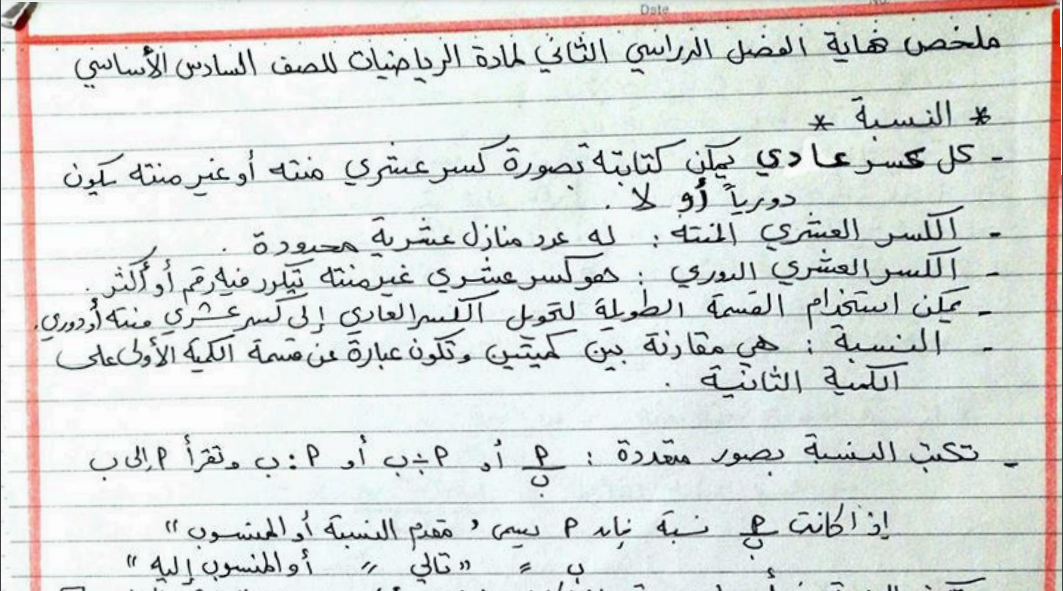 Date
No.
ملخص نهاية الفصل الدراسي الثاني لمادة الرياضيات للصف السادس الأساسي
* النسبة *
- كل كسر عادي يمكن كتابته بصورة كسر عشري منته أو غير منته يكون
دورياً أو لا .
- الكسر العشري المنته : له عدد منازل عشرية محدودة .
- الكسر العشري الدوري : هو كسر عشري غير منته يتكرر فيه رقم أو أكثر .
- يمكن استخدام القسمة الطويلة لتحويل الكسر العادي إلى كسر عشري منته أو دوري.
- النسبة : هي مقارنة بين كميتين وتكون عبارة عن قسمة الكمية الأولى على
الكمية الثانية .
- تكتب النسبة بصور متعددة : أ/ب أو أ÷ب أو أ:ب وتقرأ أ إلى ب
إذا كانت أ/ب نسبة فإن أ يسمى "مقدم النسبة أو المنسوب"
ب = "تالي 〃 أو المنسوب إليه"